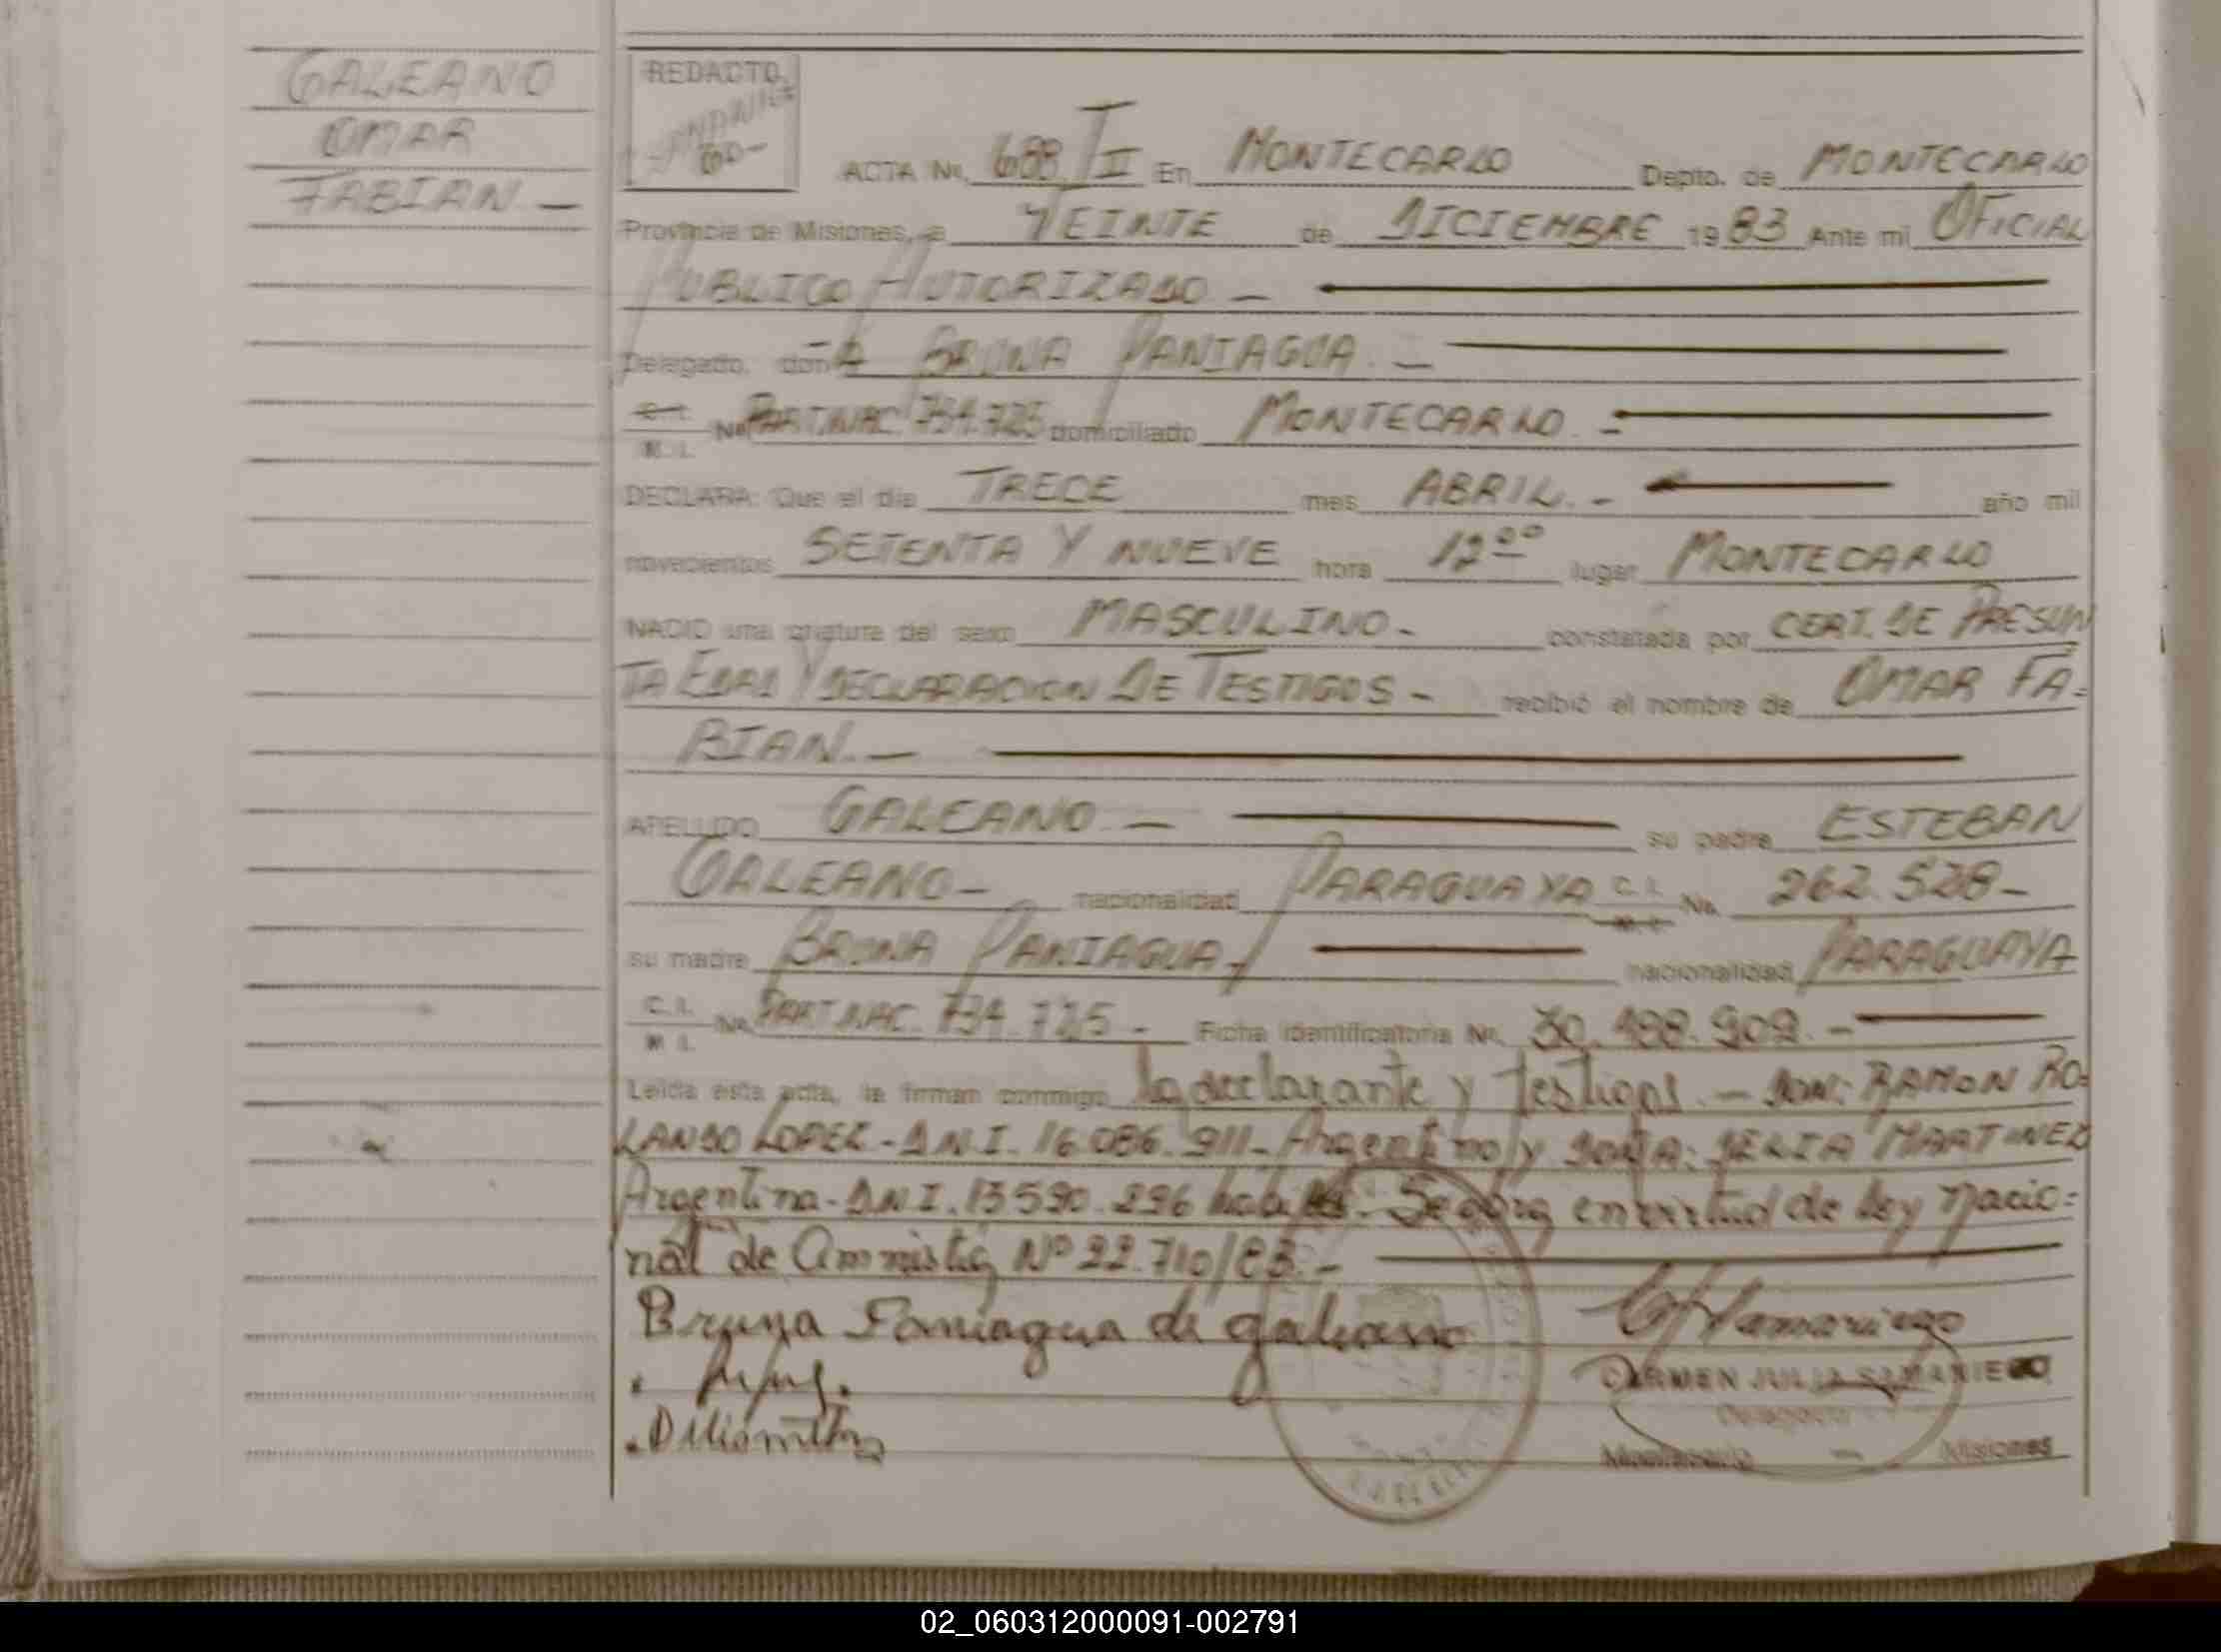 GALEANO
OMAR
FABIAN.-
REDACTO
ACTA No. 688 T II En MONTECARLO Depto. de MONTECARLO
Provincia de Misiones, a VEINTE de DICIEMBRE 1983 Ante mi OFICIAL
PUBLICO AUTORIZADO -
Delegado, doñA BRUNA PANIAGUA.-
C.I. M.I. No PART.NAC. 794.725 domiciliado MONTECARLO.-
DECLARA: Que el día TRECE mes ABRIL.- año mil
novecientos SETENTA Y NUEVE hora 12°° lugar MONTECARLO
NACIO una criatura del sexo MASCULINO.- constatada por CERT. DE PRESUN
TA EDAD Y DECLARACION DE TESTIGOS - recibió el nombre de OMAR FA=
BIAN.-
APELLIDO GALEANO.- su padre ESTEBAN
GALEANO- nacionalidad PARAGUAYA C.I. M.I. No. 262.528-
su madre BRUNA PANIAGUA.- nacionalidad PARAGUAYA
C.I. M.I. No. PART.NAC. 794.725 - Ficha Identificatoria No. 30.488.909.-
Leída esta acta, la firman conmigo la declarante y testigos.- DON: RAMON RO=
LANDO LOPEZ - D.N.I. 16.086.911- Argentino y DOÑA: DELIA MARTINEZ
Argentina - D.N.I. 13.590.296 Se labra en virtud de Ley Nacio=
nal de Ammistia Nº 22.710/83.-
Bruna Paniagua de galeano
CARMEN JULIA SAMANIEGO
Delegada
Montecarlo - Misiones
02_060312000091-002791